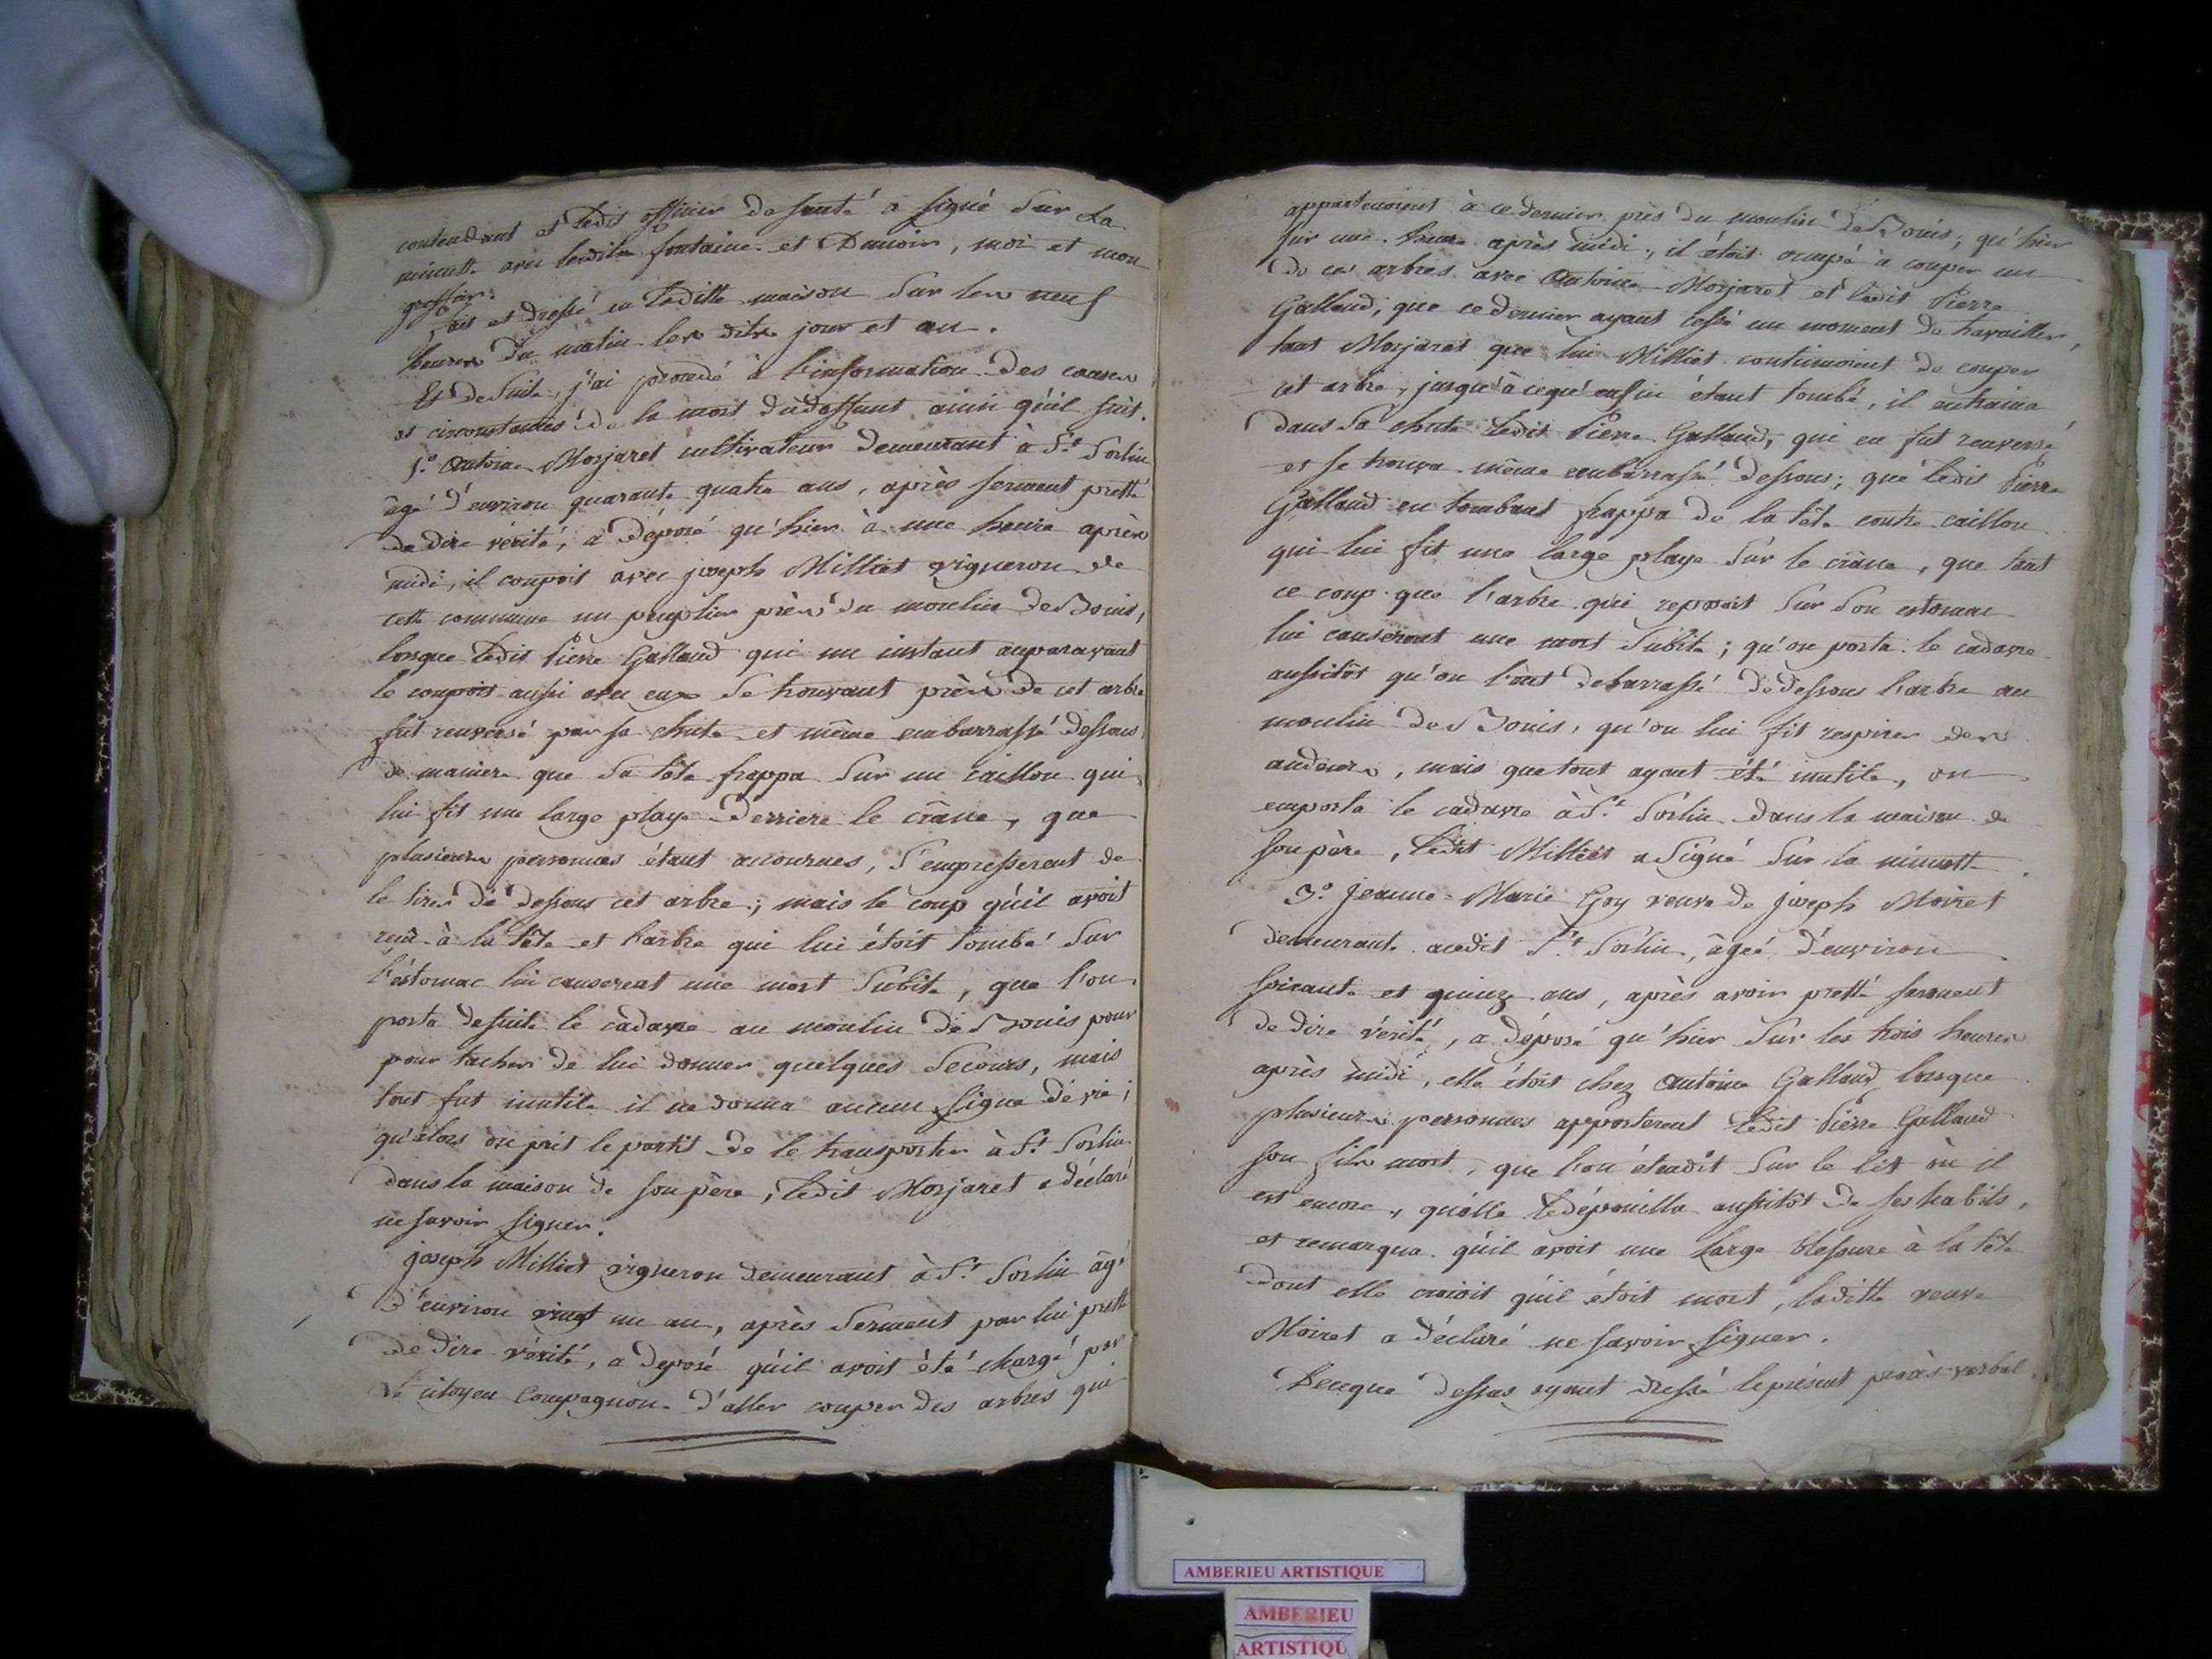 contendant et ledit officier de santé a signé sur la
minutte avec lesdits fontaine et Dunoir, moi et mon
greffier.
fait et dressé en laditte maison sur les neuf
heures du matin les dits jour et an.
Et de suite, j'ai procedé à l'information des causes
et circonstances de la mort dudeffunt ainsi qu'il suit.
1.º Antoine Morjaret cultivateur demeurant à St Sorlin
âgé d'environ quarante quatre ans, après serment pretté
de dire vérité, a déposé qu'hier à une heure après
midi, il coupoit avec joseph Milliet vigneron de
cette commune un peuplier près du moulin de Bouis,
lorsque ledit Pierre Galland qui un instant auparavant
le coupoit aussi avec eux se trouvant près de cet arbre
fut renversé par sa chute et même embarrassé dessous,
de maniere que sa tête frappa sur un caillou qui
lui fit une large playe derriere le crâne, que
plusieurs personnes étant accourues, s'empresserent de
le tirer de dessous cet arbre; mais le coup qu'il avoit
reçu à la tête et l'arbre qui lui étoit tombé sur
l'estomac lui causerent une mort subite, que l'on
porta desuite le cadavre au moulin de Bouis pour
pour tacher de lui donner quelques secours, mais
tout fut inutile il ne donna aucun signe de vie;
qu'alors on prit le partit de le transporter à St Sorlin
dans la maison de son père, ledit Morjaret a déclaré
ne savoir signer.
joseph Milliet vigneron demeurant à St Sorlin âgé
d'environ vingt un an, après serment par lui pretté
de dire vérité, a deposé qu'il avoit été chargé par
le citoyen Compagnon d'aller couper des arbres qui
appartenoient à ce dernier près du moulin de Bouis; qu'hier
sur une heure après midi, il étoit occupé à couper un
de ces arbres avec Antoine Morjaret et ledit Pierre
Galland; que ce dernier ayant cessé un moment de travailler,
tant Morjaret que lui Milliet continuoient de couper
cet arbre, jusqu'à cequ'enfin étant tombé, il entraina
dans sa chute ledit Pierre Galland, qui en fut renversé
et se trouva même embarrassé dessous; que ledit Pierre
Galland en tombant frappa de la tête contre caillou
qui lui fit une large playe sur le crâne, que tant
ce coup que l'arbre qui reposoit sur son estomac
lui causerent une mort subite; qu'on porta le cadavre
aussitôt qu'on l'eut debarrassé de dessous l'arbre au
moulin de Bouis, qu'on lui fit respirer des
audeurs, mais que tout ayant été inutile, on
emporta le cadavre à St Sorlin dans la maison de
son père, ledit Milliet a signé sur la minutte.
3.º Jeanne-Marie Goy veuve de joseph Moiret
demeurante audit St Sorlin, âgée d'environ
soixante et quinze ans, après avoir pretté serment
de dire vérité, a déposé qu'hier sur les trois heures
après midi, elle étoit chez Antoine Galland lorsque
plusieurs personnes apporterent ledit Pierre Galland
son fils mort, que l'on étendit sur le lit où il
est encore, qu'elle le dépouilla aussitôt de ses habits,
et remarqua qu'il avoit une large blessure à la tête
dont elle croioit qu'il étoit mort, laditte veuve
Moiret a déclaré ne savoir signer.
Decque dessus ayant dressé leprésent procès-verbal
AMBERIEU ARTISTIQUE
AMBERIEU
ARTISTIQU